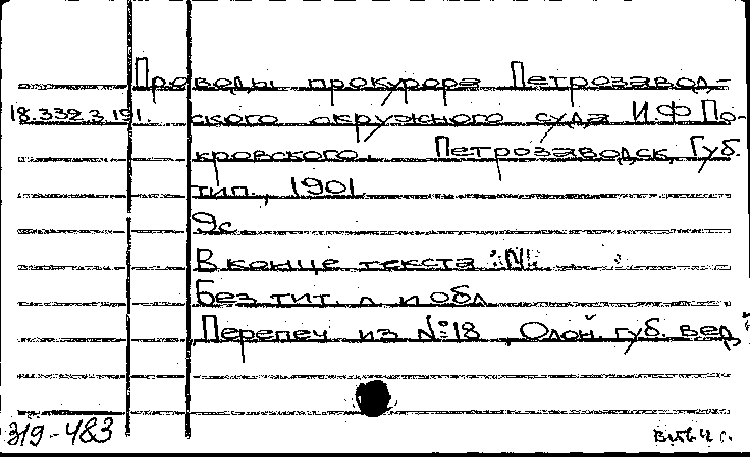 Проводы прокурора Петрозавод-
18.332.3.191. ского окружного суда И.Ф По-
кровского. Петрозаводск, Губ.
тип., 1901
9с.
В конце текста: N.
Без тит. л. и обл.
Перепеч из №18 "Олон. губ. вед."
319-483